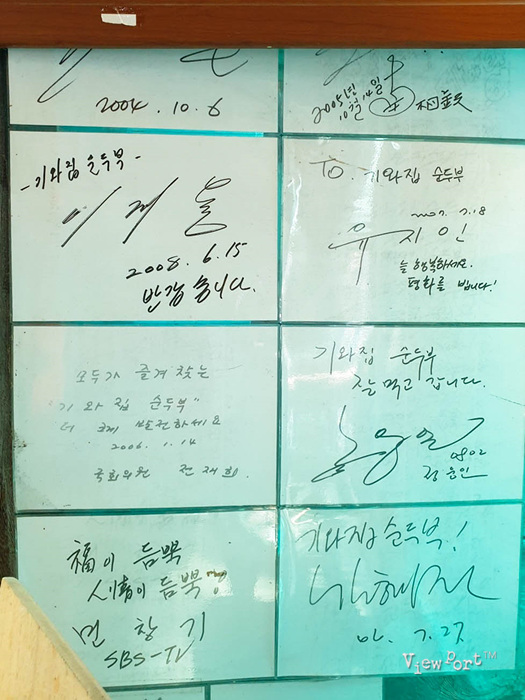 2004. 10. 6
2005년
10월 14일
相鉉
-기와집 순두부-
이재용
2008. 6. 15
반갑습니다.
TO. 기와집 순두부
2007. 7. 18
유지인
늘 행복하세요.
평화를 빕니다!
모두가 즐겨 찾는
"기와집 순두부"
더 크게 발전하세요
2006. 1. 14
국회의원 전재희
기와집 순두부
잘 먹고 갑니다.
0802
정흥인
福이 듬뿍
人情이 듬뿍
변창기
SBS-TV
기와집 순두부!
02. 7. 27
ViewPort™